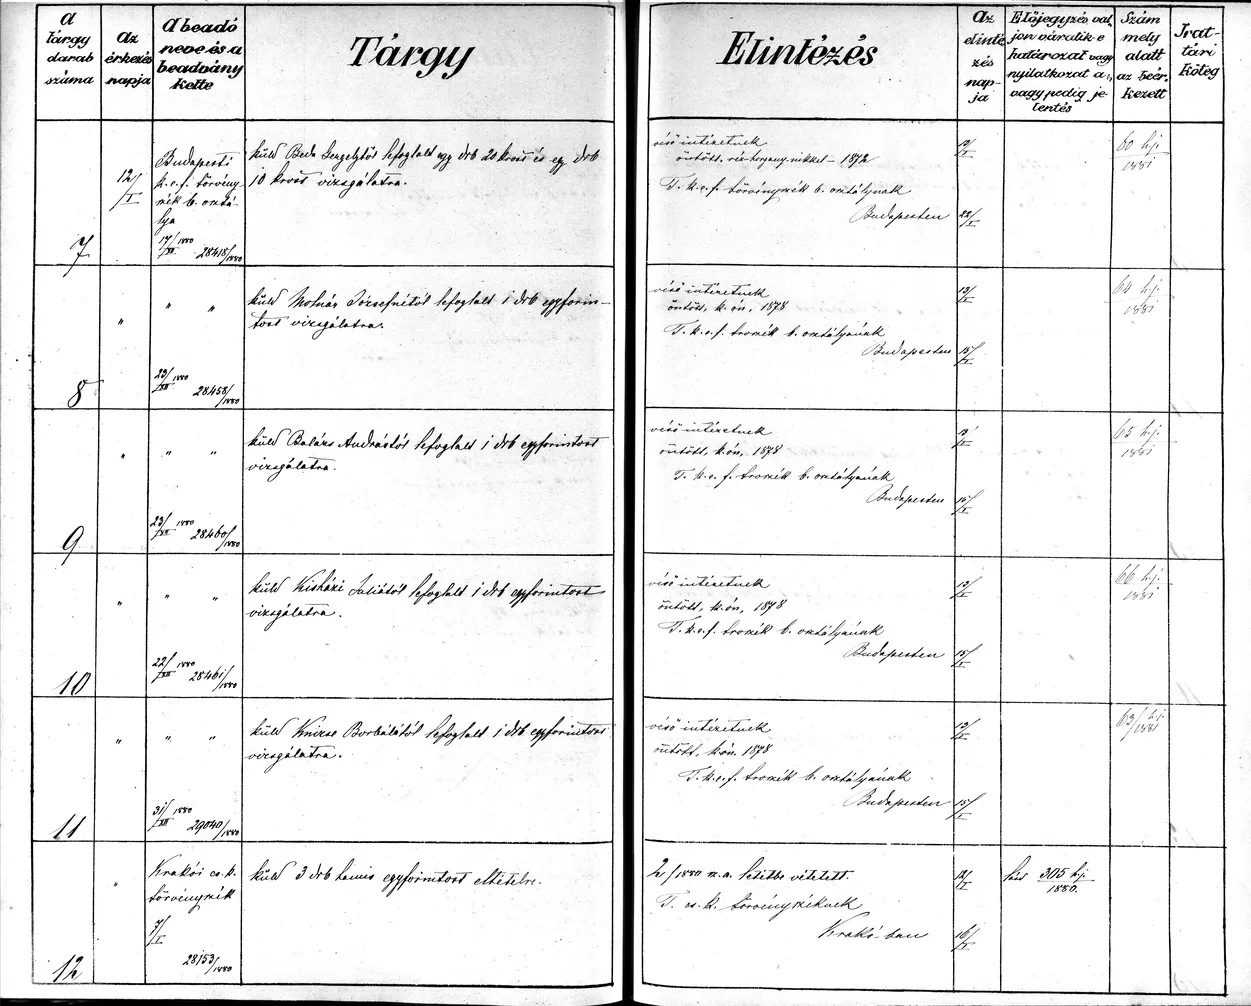 A tárgy darab száma
Az érkezés napja
A beadó neve és a beadvány kelte
Tárgy
Elintézés
Az elinté zés nap- ja
Előjegyzés val- jon váratik-e határozat vagy nyilatkozat a., vagy pedig je- lentés
Szám mely alatt az beér- kezett
Irat- tári köteg
7
12/I
Budapesti
k.e.f. törvény
zék b. osztá-
lya
17/XII 1880 28418/1880
küld Beda Gergelytől lefoglalt egy drb 20 kros és egy drb
10 krost vizsgálatra.
véső intézetnek
öntött, 1872
T. k.e.f. törvényszék b. osztályának
Budapesten
60 hj.
1881
8
" " "
23/XII 1880 28458/1880
küld Molnár Józsefnétől lefoglalt 1 drb egyforin-
tost vizsgálatra.
véső intézetnek
13/I
öntött, k. ón, 1878
T. k.e.f. trvszék b. osztályának
Budapesten 15/I
64 hj.
1881
9
" " "
23/XII 1880 28460/1880
küld Balázs Andrástól lefoglalt 1 drb egyforintost
vizsgálatra.
véső intézetnek
öntött, k.ón, 1878
T. k.e.f. trvszék b. osztályának
Budapesten 15/I
65 hj.
1881
10
" " "
22/XII 1880 28461/1880
küld Kisházi Juliától lefoglalt 1 drb egyforintost
vizsgálatra.
véső intézetnek
13/I
öntött, k.ón, 1878
T. k.e.f. trvszék b. osztályának
Budapesten 15/I
66 hj.
1881
11
" " "
31/XII 1880 29040/1880
küld Borbálától lefoglalt 1 drb egyforintost
vizsgálatra.
véső intézetnek
13/I
öntött, k.ón. 1878
T. k.e.f. trvszék b. osztályának
Budapesten 15/I
63/hj.
1881
12
"
Krakói cs. k.
törvényszék
7/I
28153/1880
küld 3 drb hamis egyforintost eltételre.
2/1880 n.a. letétbe vétetett.
12/I
T. cs. k. törvényszéknek
Krakó-ban 16/I
lásd 305 hj
1880.